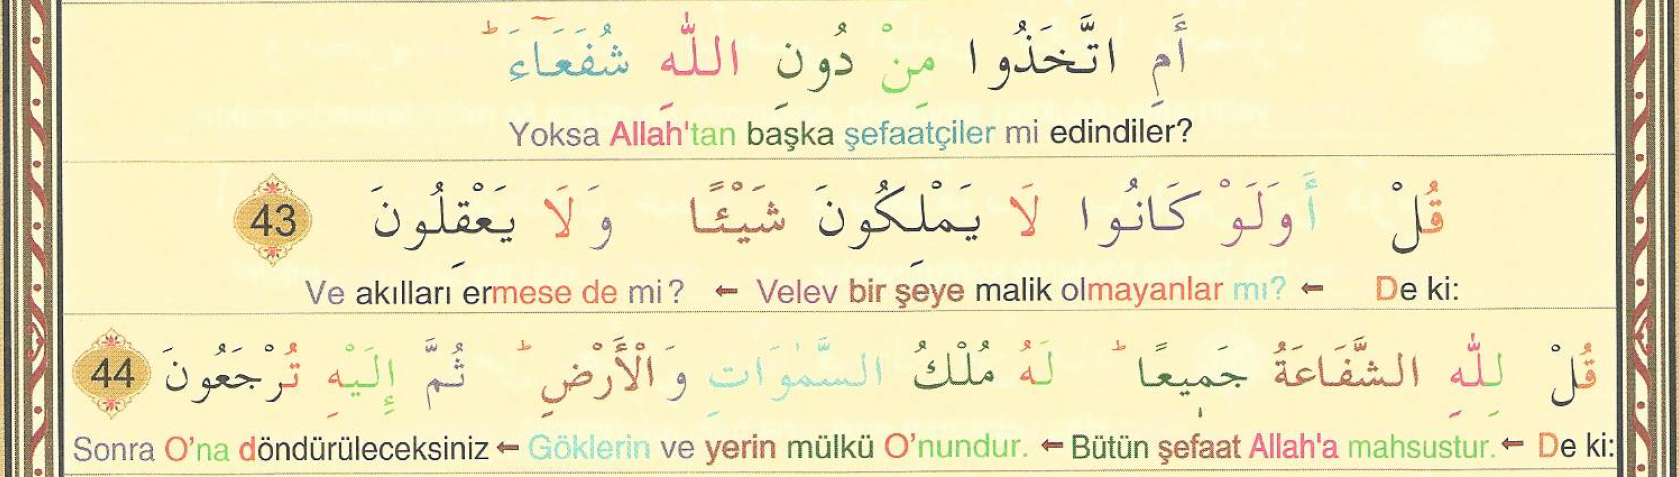 أَمِ اتَّخَذُوا مِنْ دُونِ اللّٰهِ شُفَعَٓاءَۜ
Yoksa Allah'tan başka şefaatçiler mi edindiler?
قُلْ أَوَلَوْ كَانُوا لَا يَمْلِكُونَ شَيْـًٔا وَلَا يَعْقِلُونَ 43
De ki: ← Velev bir şeye malik olmayanlar mı? ← Ve akılları ermese de mi?
قُلْ لِلّٰهِ الشَّفَاعَةُ جَمِيعًاۜ لَهُ مُلْكُ السَّمٰوَاتِ وَالْأَرْضِۜ ثُمَّ إِلَيْهِ تُرْجَعُونَ 44
De ki: ← Bütün şefaat Allah'a mahsustur. ← Göklerin ve yerin mülkü O'nundur. ← Sonra O'na döndürüleceksiniz